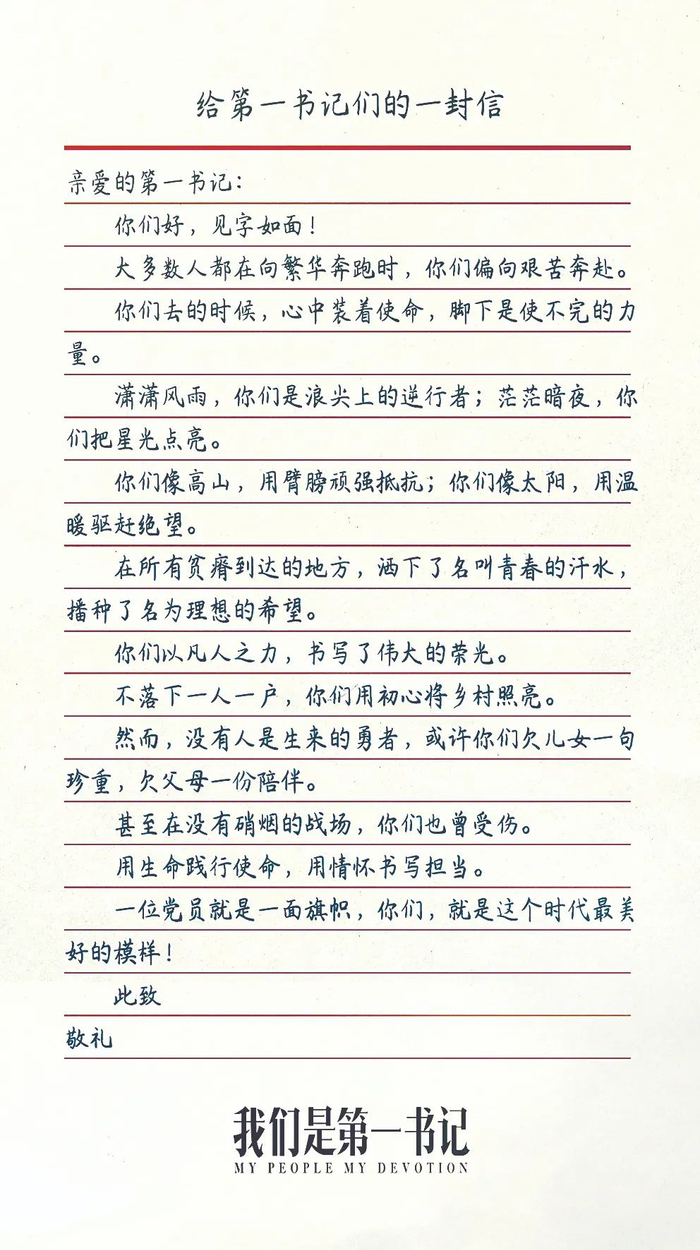 给第一书记们的一封信
亲爱的第一书记：
你们好，见字如面！
大多数人都在向繁华奔跑时，你们偏向艰苦奔赴。
你们去的时候，心中装着使命，脚下是使不完的力
量。
潇潇风雨，你们是浪尖上的逆行者；茫茫暗夜，你
们把星光点亮。
你们像高山，用臂膀顽强抵抗；你们像太阳，用温
暖驱赶绝望。
在所有贫瘠到达的地方，洒下了名叫青春的汗水，
播种了名为理想的希望。
你们以凡人之力，书写了伟大的荣光。
不落下一人一户，你们用初心将乡村照亮。
然而，没有人是生来的勇者，或许你们欠儿女一句
珍重，欠父母一份陪伴。
甚至在没有硝烟的战场，你们也曾受伤。
用生命践行使命，用情怀书写担当。
一位党员就是一面旗帜，你们，就是这个时代最美
好的模样！
此致
敬礼
我们是第一书记
MY PEOPLE MY DEVOTION